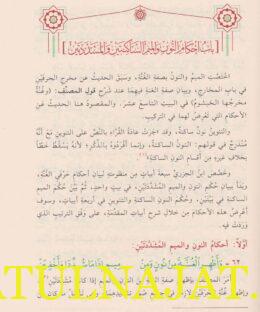 [باب أحكام النون والميم الساكنتين والمشددتين]
اختصت الميم والنون بصفة الغنة، وسبق الحديث عن مخرج الحرفين
في باب المخارج، وبيان صفة الغنة فيهما عند شرح قول المصنف: (وغنة
مخرجها الخيشوم) في البيت التاسع عشر. والمقصود هنا الحديث عن
الأحكام التي تعرض لهما في التركيب.
والتنوين نون ساكنة، وقد جرت عادة القراء بالنص على التنوين مع أنه
مندرج في قولهم: النون الساكنة، وإنما أفردوه بالذكر؛ لأنه يسقط خطا
بخلاف غيره من أقسام النون الساكنة
وخصص ابن الجزري سبعة أبيات من منظومته لبيان أحكام حرفي الغنة،
وبدأ ببيان حكم النون والميم المشددتين، في بيت واحد، ثم بين حكم الميم
الساكنة في بيتين، وحكم النون الساكنة والتنوين في أربعة أبيات، وسوف
أعرض هذه الأحكام من خلال شرح أبيات المقدمة، على وفق الترتيب الذي
وردت في
أولا: أحكام النون والميم المشددتين:
٦٢ - وأظهر الغنة من نون ومن ميم إذا ما شددا وأخفين
ATULNAJAT.